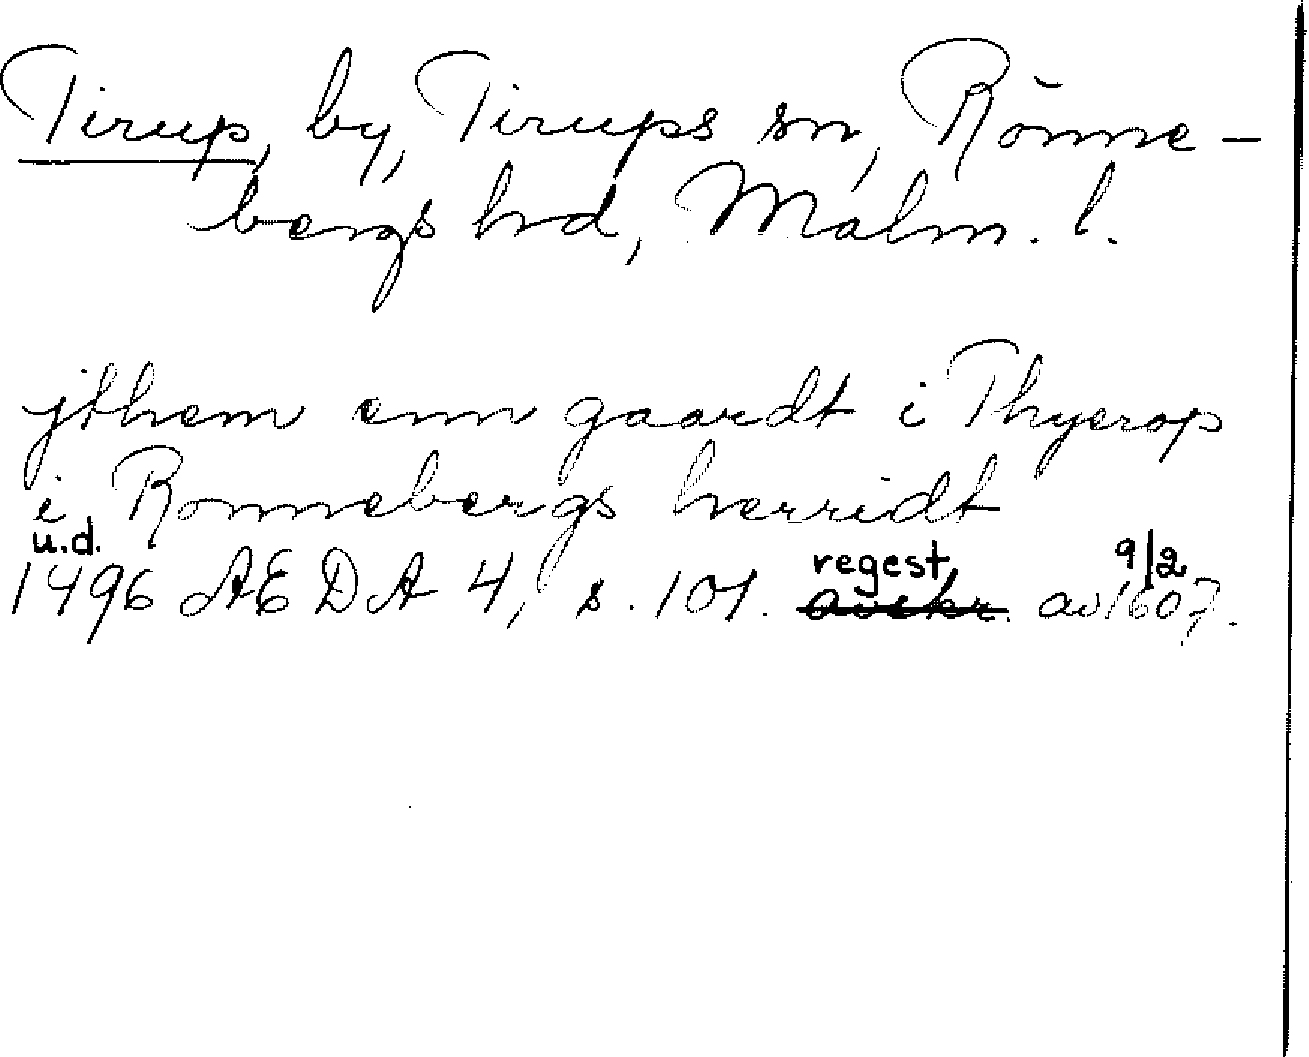 Tirup, by, Tirups sn, Rönne-
bergs hd, Malm. l.
jthem enn gaardt i Thyerop
i Ronnebergs herridt
u.d. regest, 9/2
1496 AEDA 4, s. 101. avskr. av 1607.